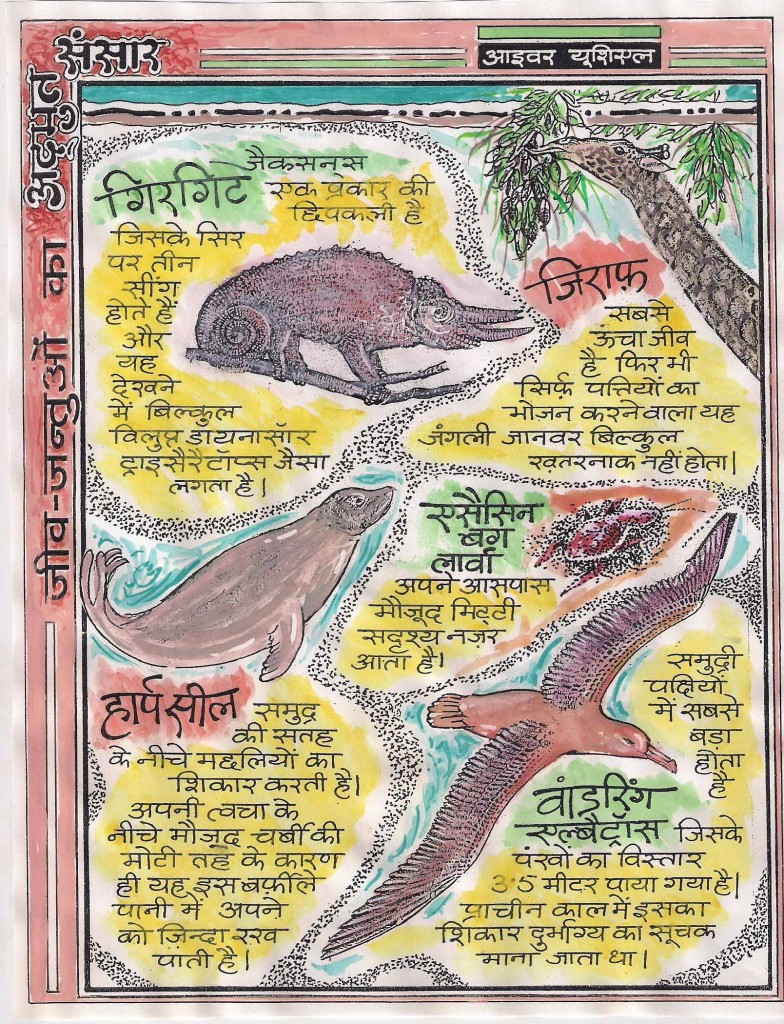 अद्भुत संसार
जीव-जन्तुओं का
आइवर यूशिएल
जैकसनस
गिरगिट एक प्रकार की
छिपकली है
जिसके सिर
पर तीन
सींग
होते हैं
और
यह
देखने
में बिल्कुल
विलुप्त डायनासॉर
ट्राइसैरैटॉप्स जैसा
लगता है।
जिराफ़
सबसे
ऊंचा जीव
है फिर भी
सिर्फ़ पत्तियों का
भोजन करनेवाला यह
जंगली जानवर बिल्कुल
खतरनाक नहीं होता।
एसैसिन
बग
लार्वा
अपने आसपास
मौजूद मिट्टी
सदृश्य नजर
आता है।
हार्प सील समुद्र
की सतह
के नीचे मछलियों का
शिकार करती है।
अपनी त्वचा के
नीचे मौजूद चर्बी की
मोटी तह के कारण
ही यह इस बर्फ़ीले
पानी में अपने
को ज़िन्दा रख
पाती है।
समुद्री
पक्षियों
में सबसे
बड़ा
होता
है
वांडरिंग
एल्बैट्रॉस जिसके
पंखों का विस्तार
3.5 मीटर पाया गया है।
प्राचीन काल में इसका
शिकार दुर्भाग्य का सूचक
माना जाता था।